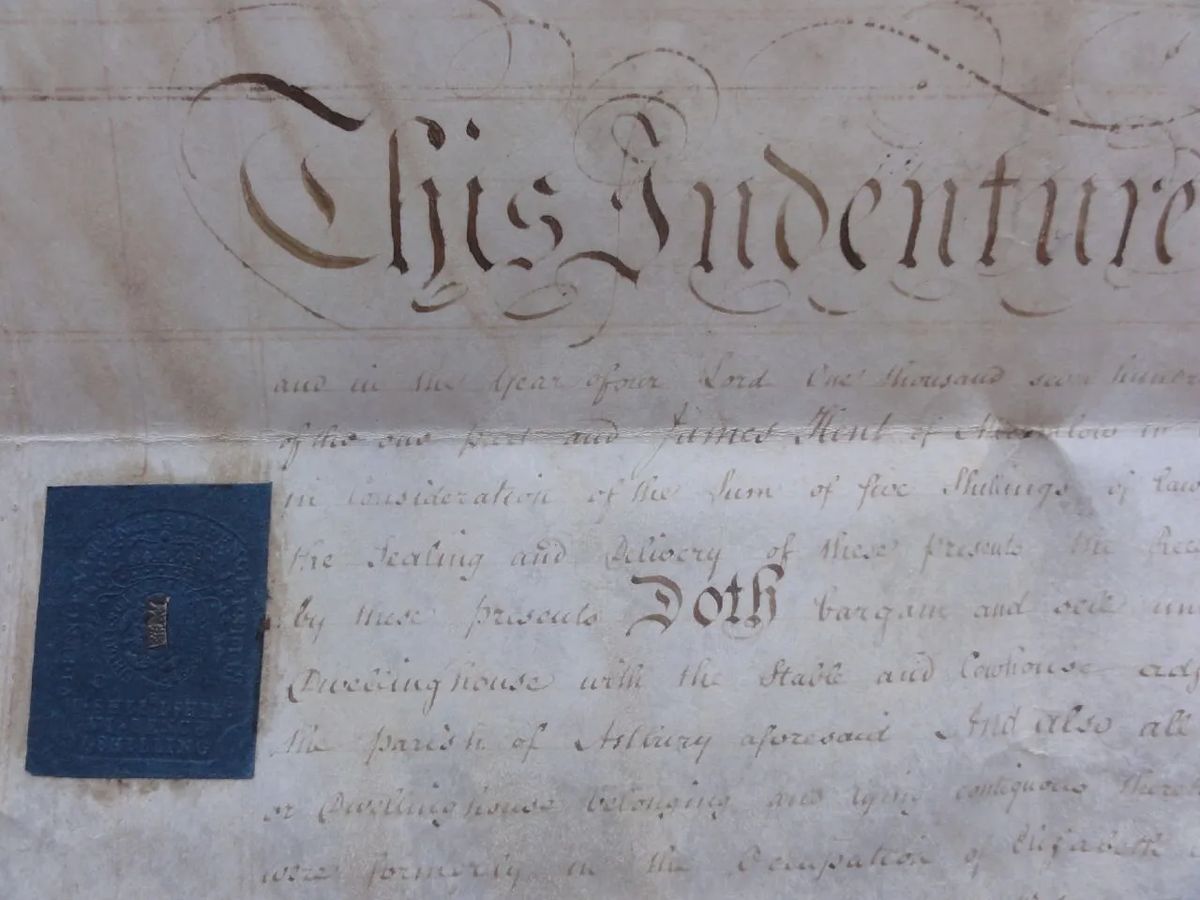 This Indenture
and in the Year of our Lord One thousand seven hundr
of the one part and James Kent of in
in Consideration of the Sum of five Shillings of law
the Sealing and Delivery of these presents the
by these presents Doth bargain and sell un
Dwellinghouse with the Stable and Cowhouse adj
the parish of Astbury aforesaid And also all
or Dwellinghouse belonging and lying contiguous there
were formerly in the Occupation of Elizabeth
SHILLING